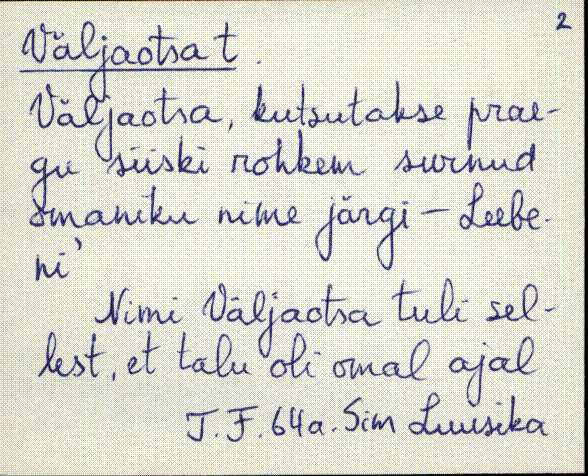 2
Väljaotsa t.
Väljaotsa, kutsutakse prae-
gu siiski rohkem surnud
omaniku nime järgi – Leebe-
ni'
Nimi Väljaotsa tuli sel-
lest, et talu oli omal ajal
J.F. 64a. Sim Luusika